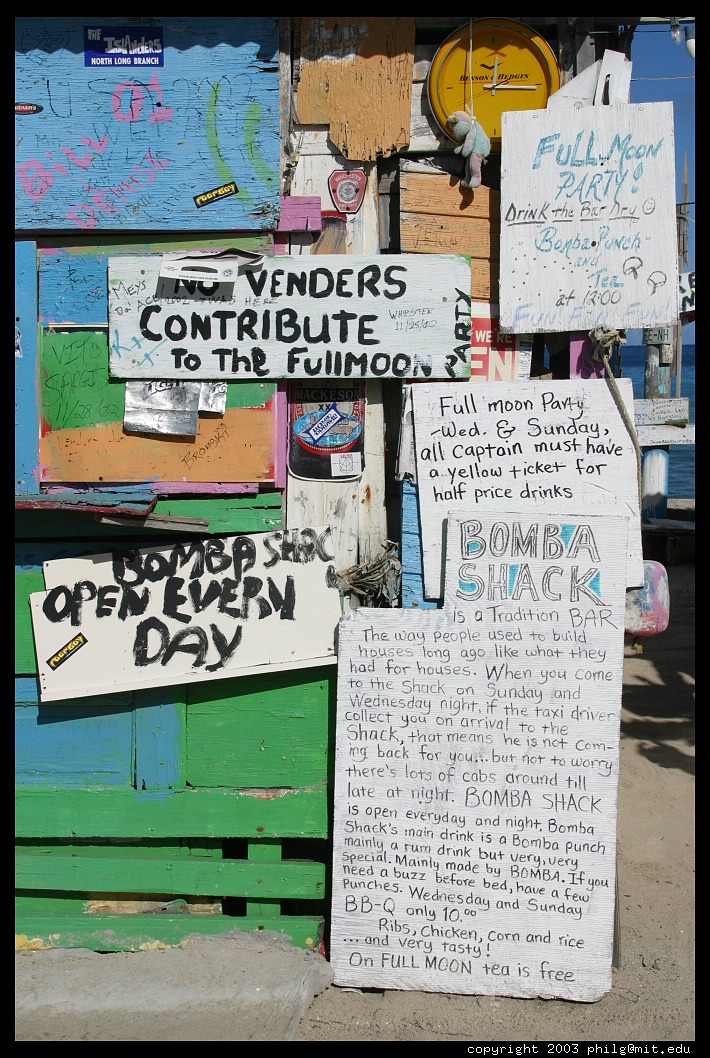 THE ISLANDERS
NORTH LONG BRANCH
BILL 01
DENISE
POOPBOY
BENSON & HEDGES
FULL MOON
PARTY!
Drink the Bar Dry
Bomba Punch
and
Tea
at 12:00
FUN FUN FUN
NO VENDERS
CONTRIBUTE
To THe FullMOON PARTY
MEYS
WAS HERE
WHIPSTER
11/25/02
VITO
11/28/02
WE'RE
MACKESON
XX
Full moon Party
Wed. & Sunday,
all Captain must have
a yellow ticket for
half price drinks
BOMBA SHAC
OPEN EVERY
DAY
POOPBOY
BOMBA
SHACK
is a Tradition BAR
The way people used to build
houses long ago like what they
had for houses. When you come
to the Shack on Sunday and
Wednesday night, if the taxi driver
collect you on arrival to the
Shack, that means he is not com-
ing back for you... but not to worry
there's lots of cabs around till
late at night. BOMBA SHACK
is open everyday and night. Bomba
Shack's main drink is a Bomba punch
mainly a rum drink but very, very
special. Mainly made by BOMBA. If you
need a buzz before bed, have a few
Punches. Wednesday and Sunday
BB-Q only 10.00
Ribs, Chicken, Corn and rice
... and very tasty!
On FULL MOON tea is free
copyright 2003 philg@mit.edu